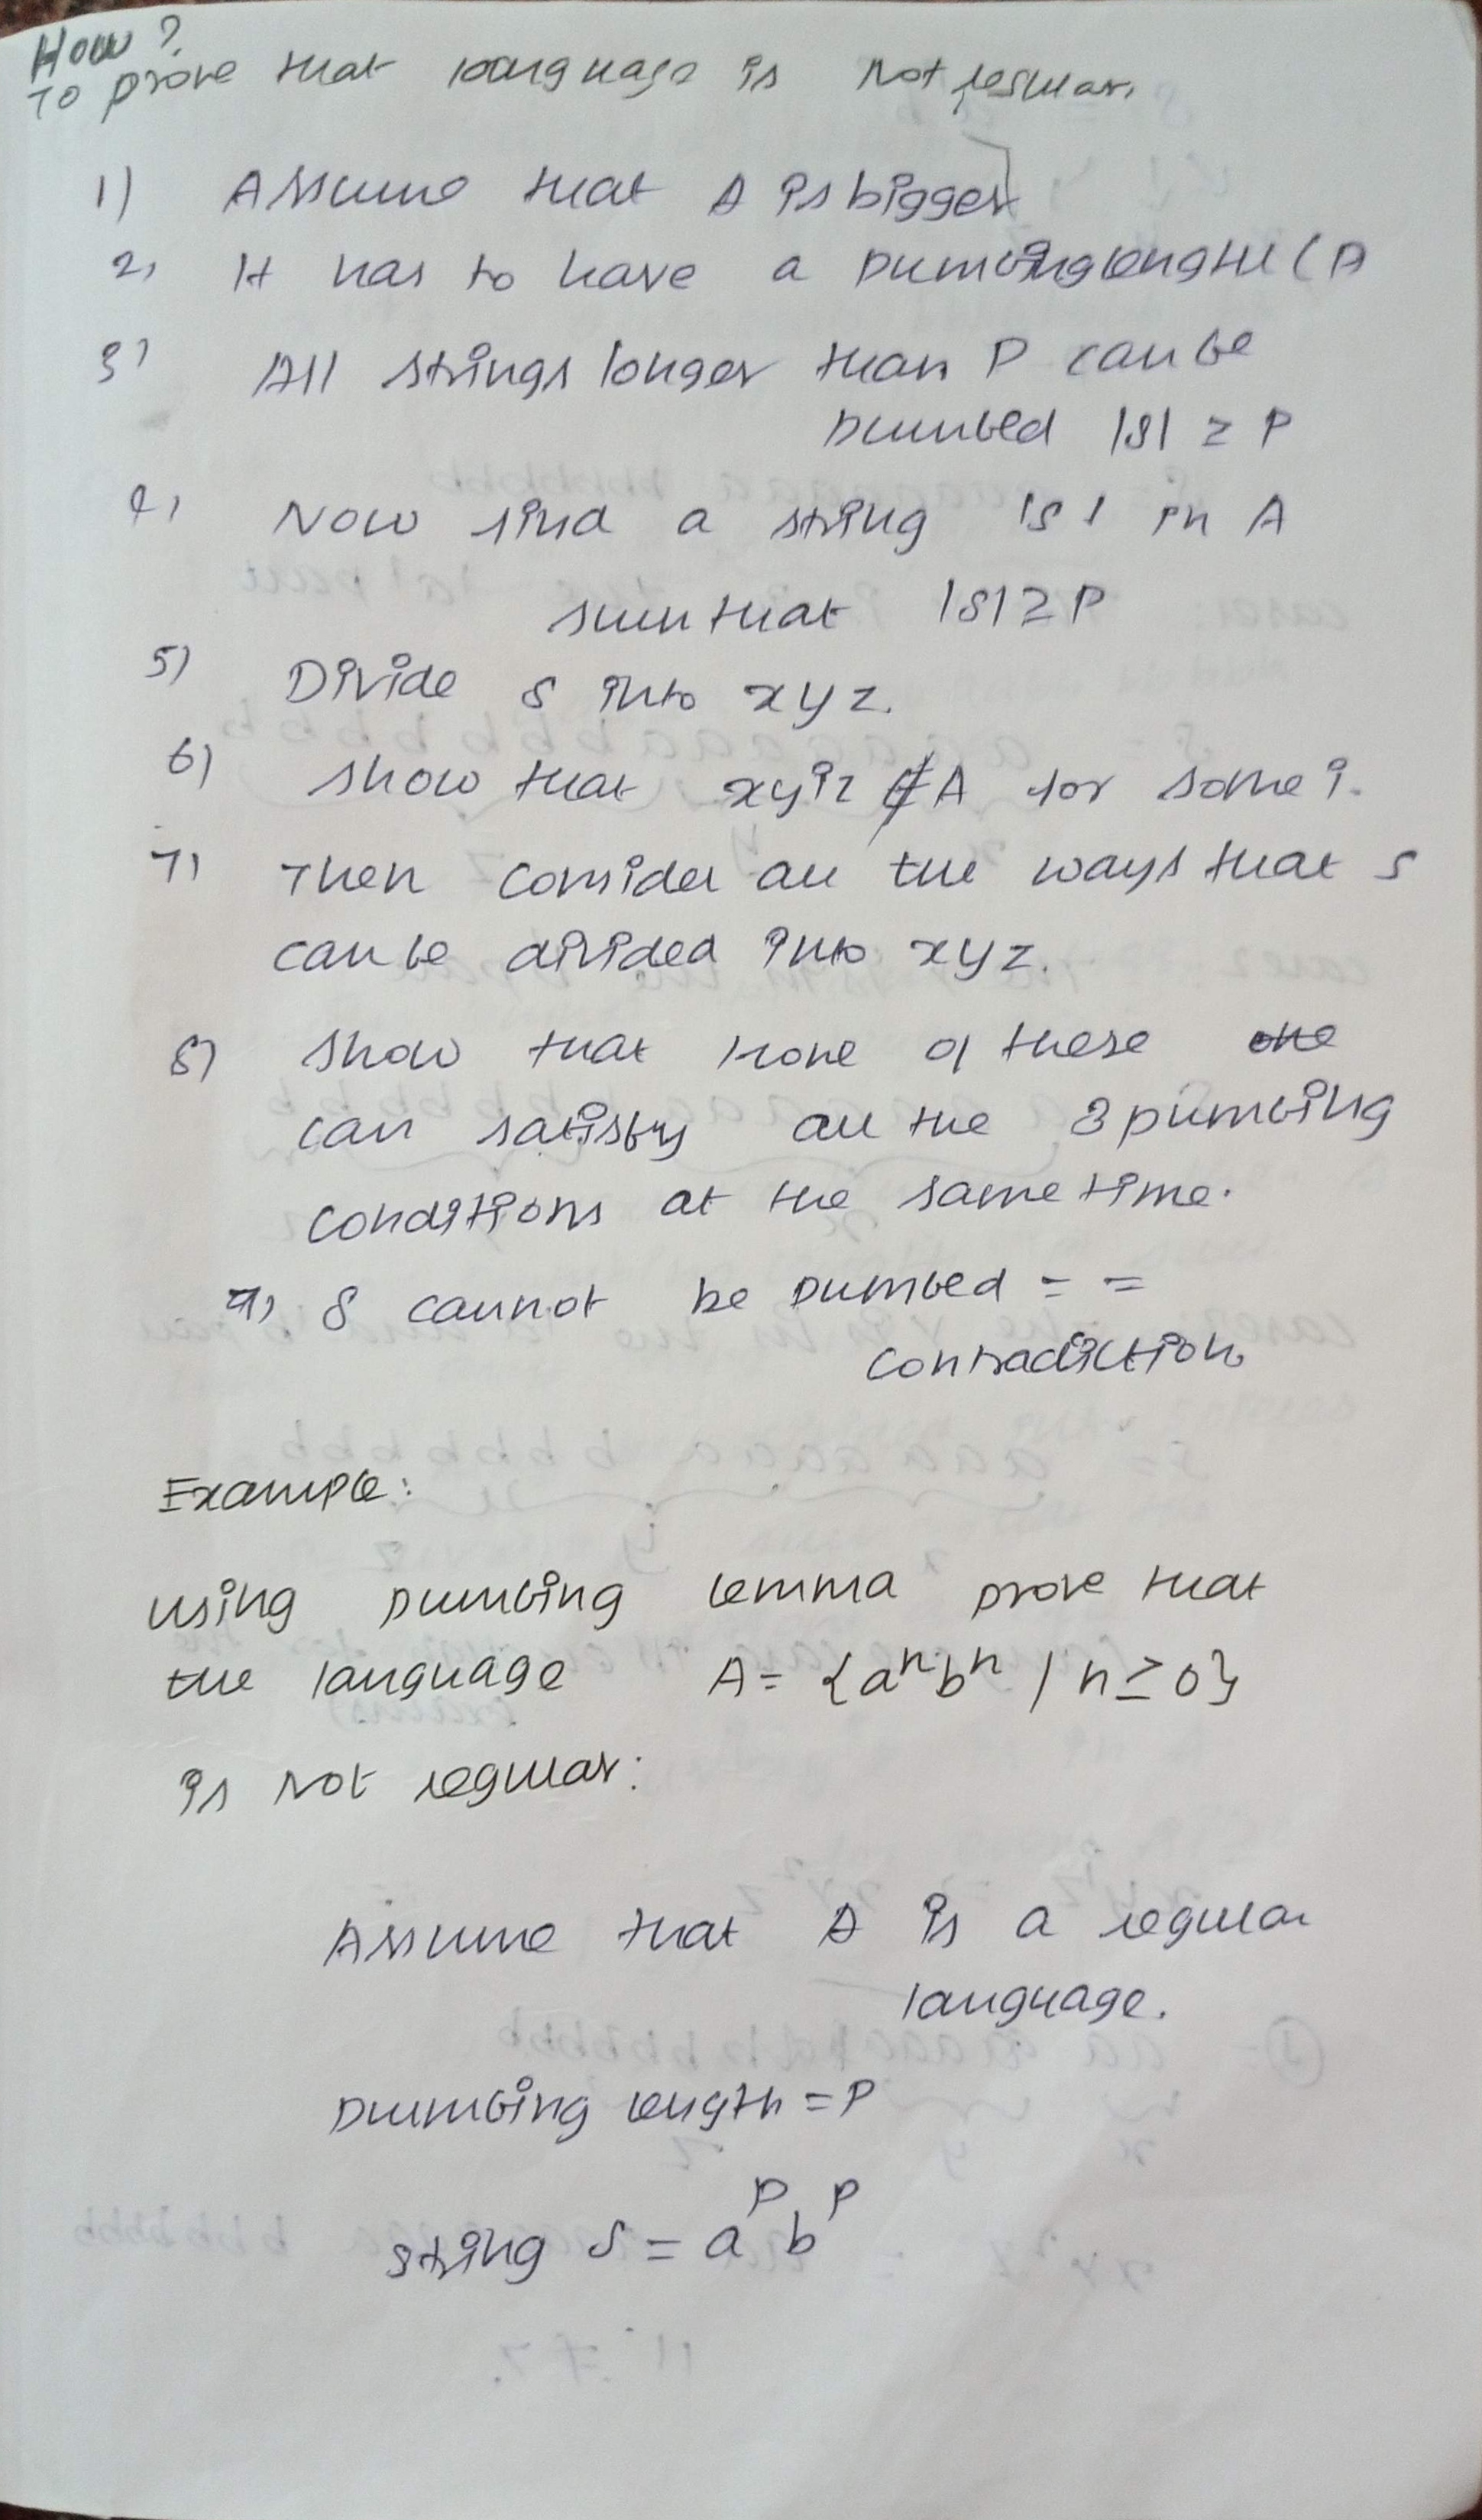 How?
To prove that language is Not regular.
1) Assume that A is bigger
2, It has to have a pumbing length (P
3) All strings longer than P can be
pumbed |S| ≥ P
4) Now find a string |S| in A
such that |S| ≥ P
5) Divide S into xyz.
6) show that xyiz ∉ A for some i.
7) Then consider all the ways that S
can be divided into xyz.
8) show that none of these
can satisfy all the 3 pumbing
conditions at the same time.
9) S cannot be pumbed = =
contradiction
Example:
using pumbing lemma prove that
the language A = {aⁿbⁿ / n ≥ 0}
is Not regular:
Assume that A is a regular
language.
pumbing length = P
string S = aᴾ bᴾ